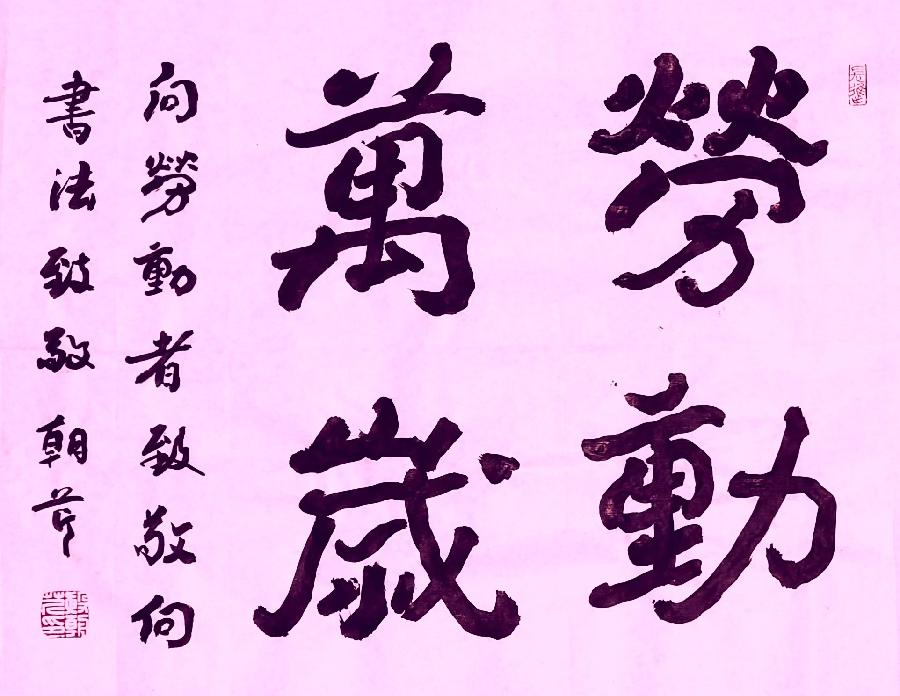 勞動
萬歲
向勞動者致敬向
書法致敬朝芹